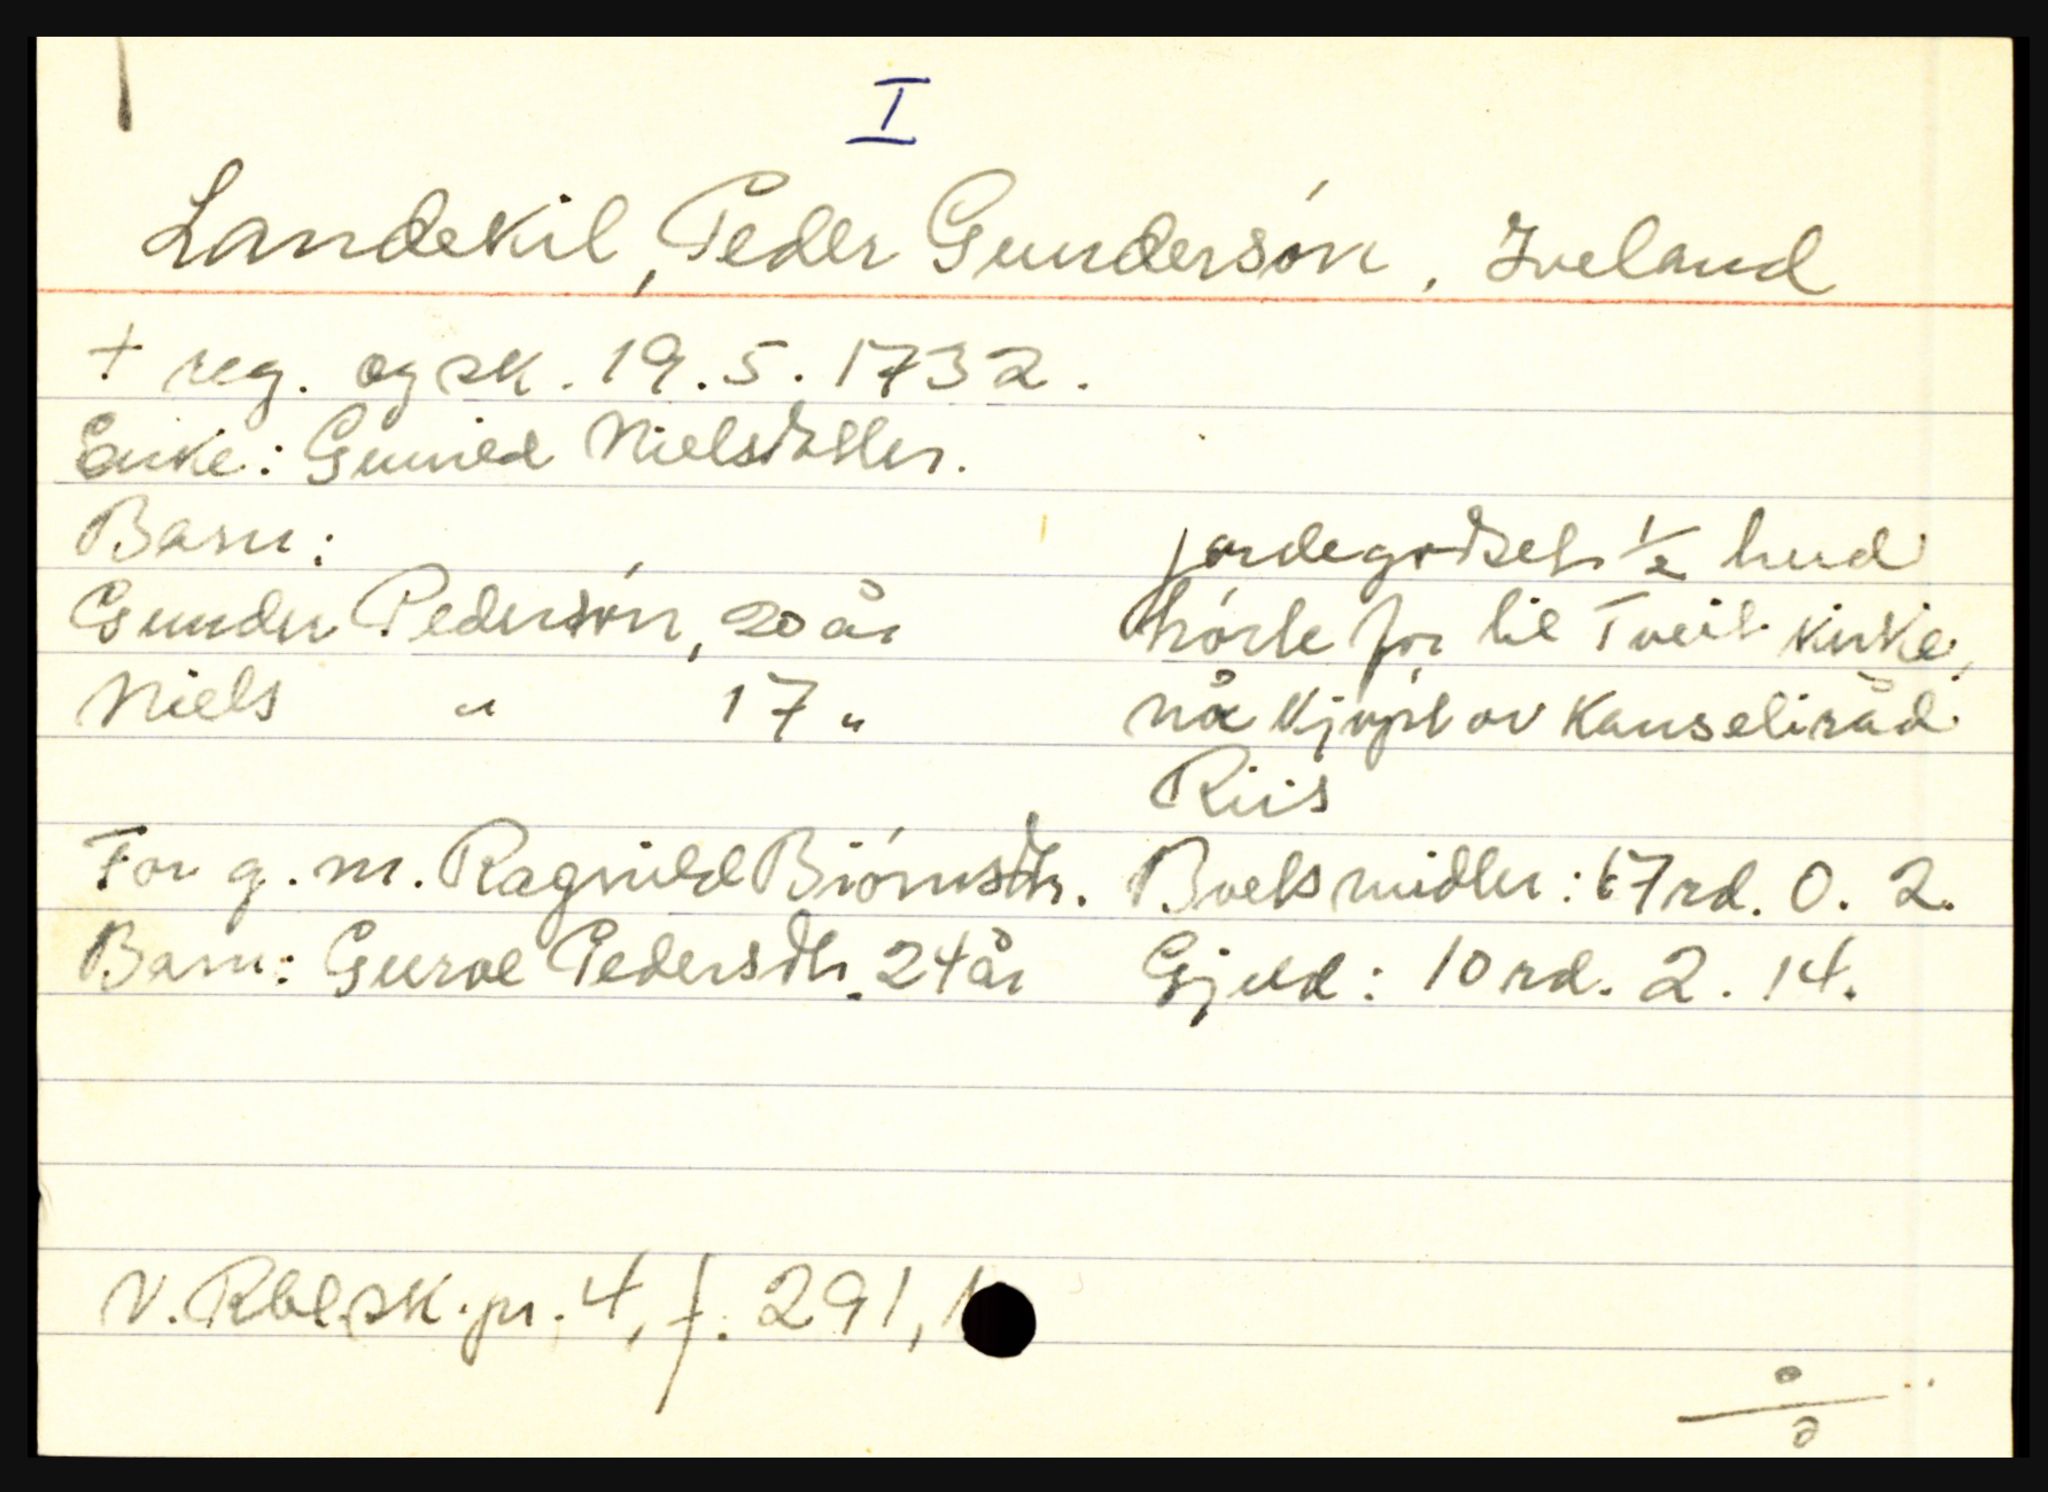 I
Landekil, Peder Gundersón, Iveland
+ reg. og sk. 19.5.1732.
Enke: Gunild Nielsdotter.
Barn:
Gunder Pedersón, 20 år
Niels " 17 "
For g. m. Ragnild Biórnsdtr.
Barn: Guroe Pedersdtr. 24 år
jordegodset 1/2 hud
hórte för til Tveit kirke,
nå kjøpt av Kanseliråd
Riis
Boets midler: 67 rd. 0. 2.
Gjeld: 10 rd. 2. 14.
V. Rbl. sk. pr. 4, f. 291, 1